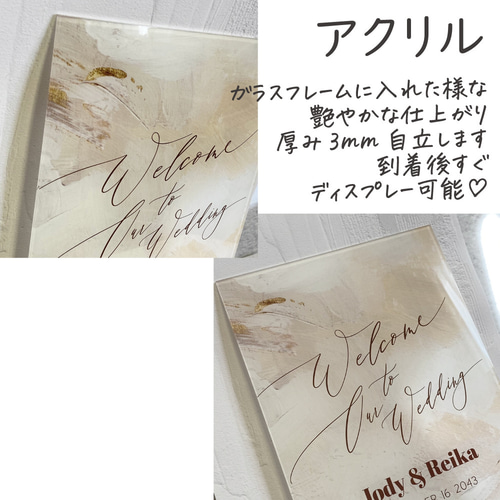 アクリル
ガラスフレームに入れた様な
艶やかな仕上がり
厚み 3mm 自立します
到着後すぐ
ディスプレー可能♡
Welcome
to
Our Wedding
Welcome
to
Our Wedding
Jody & Reika
ER 16, 2043